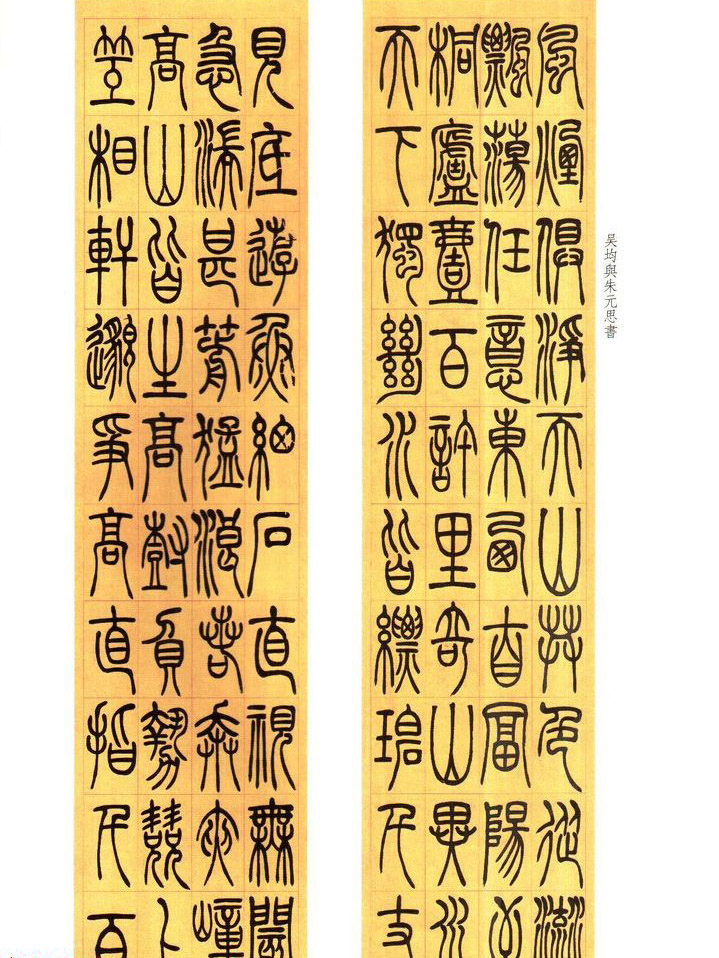 吴均與朱元思書
風煙俱淨天山共色從流
飄蕩任意東西自富陽至
桐廬壹百許里奇山異水
天下獨絕水皆縹碧千丈
見底遊魚細石直視無閡
急湍甚箭猛浪若奔夾嶂
高山皆生高樹負勢競上
互相軒邈爭高直指千百